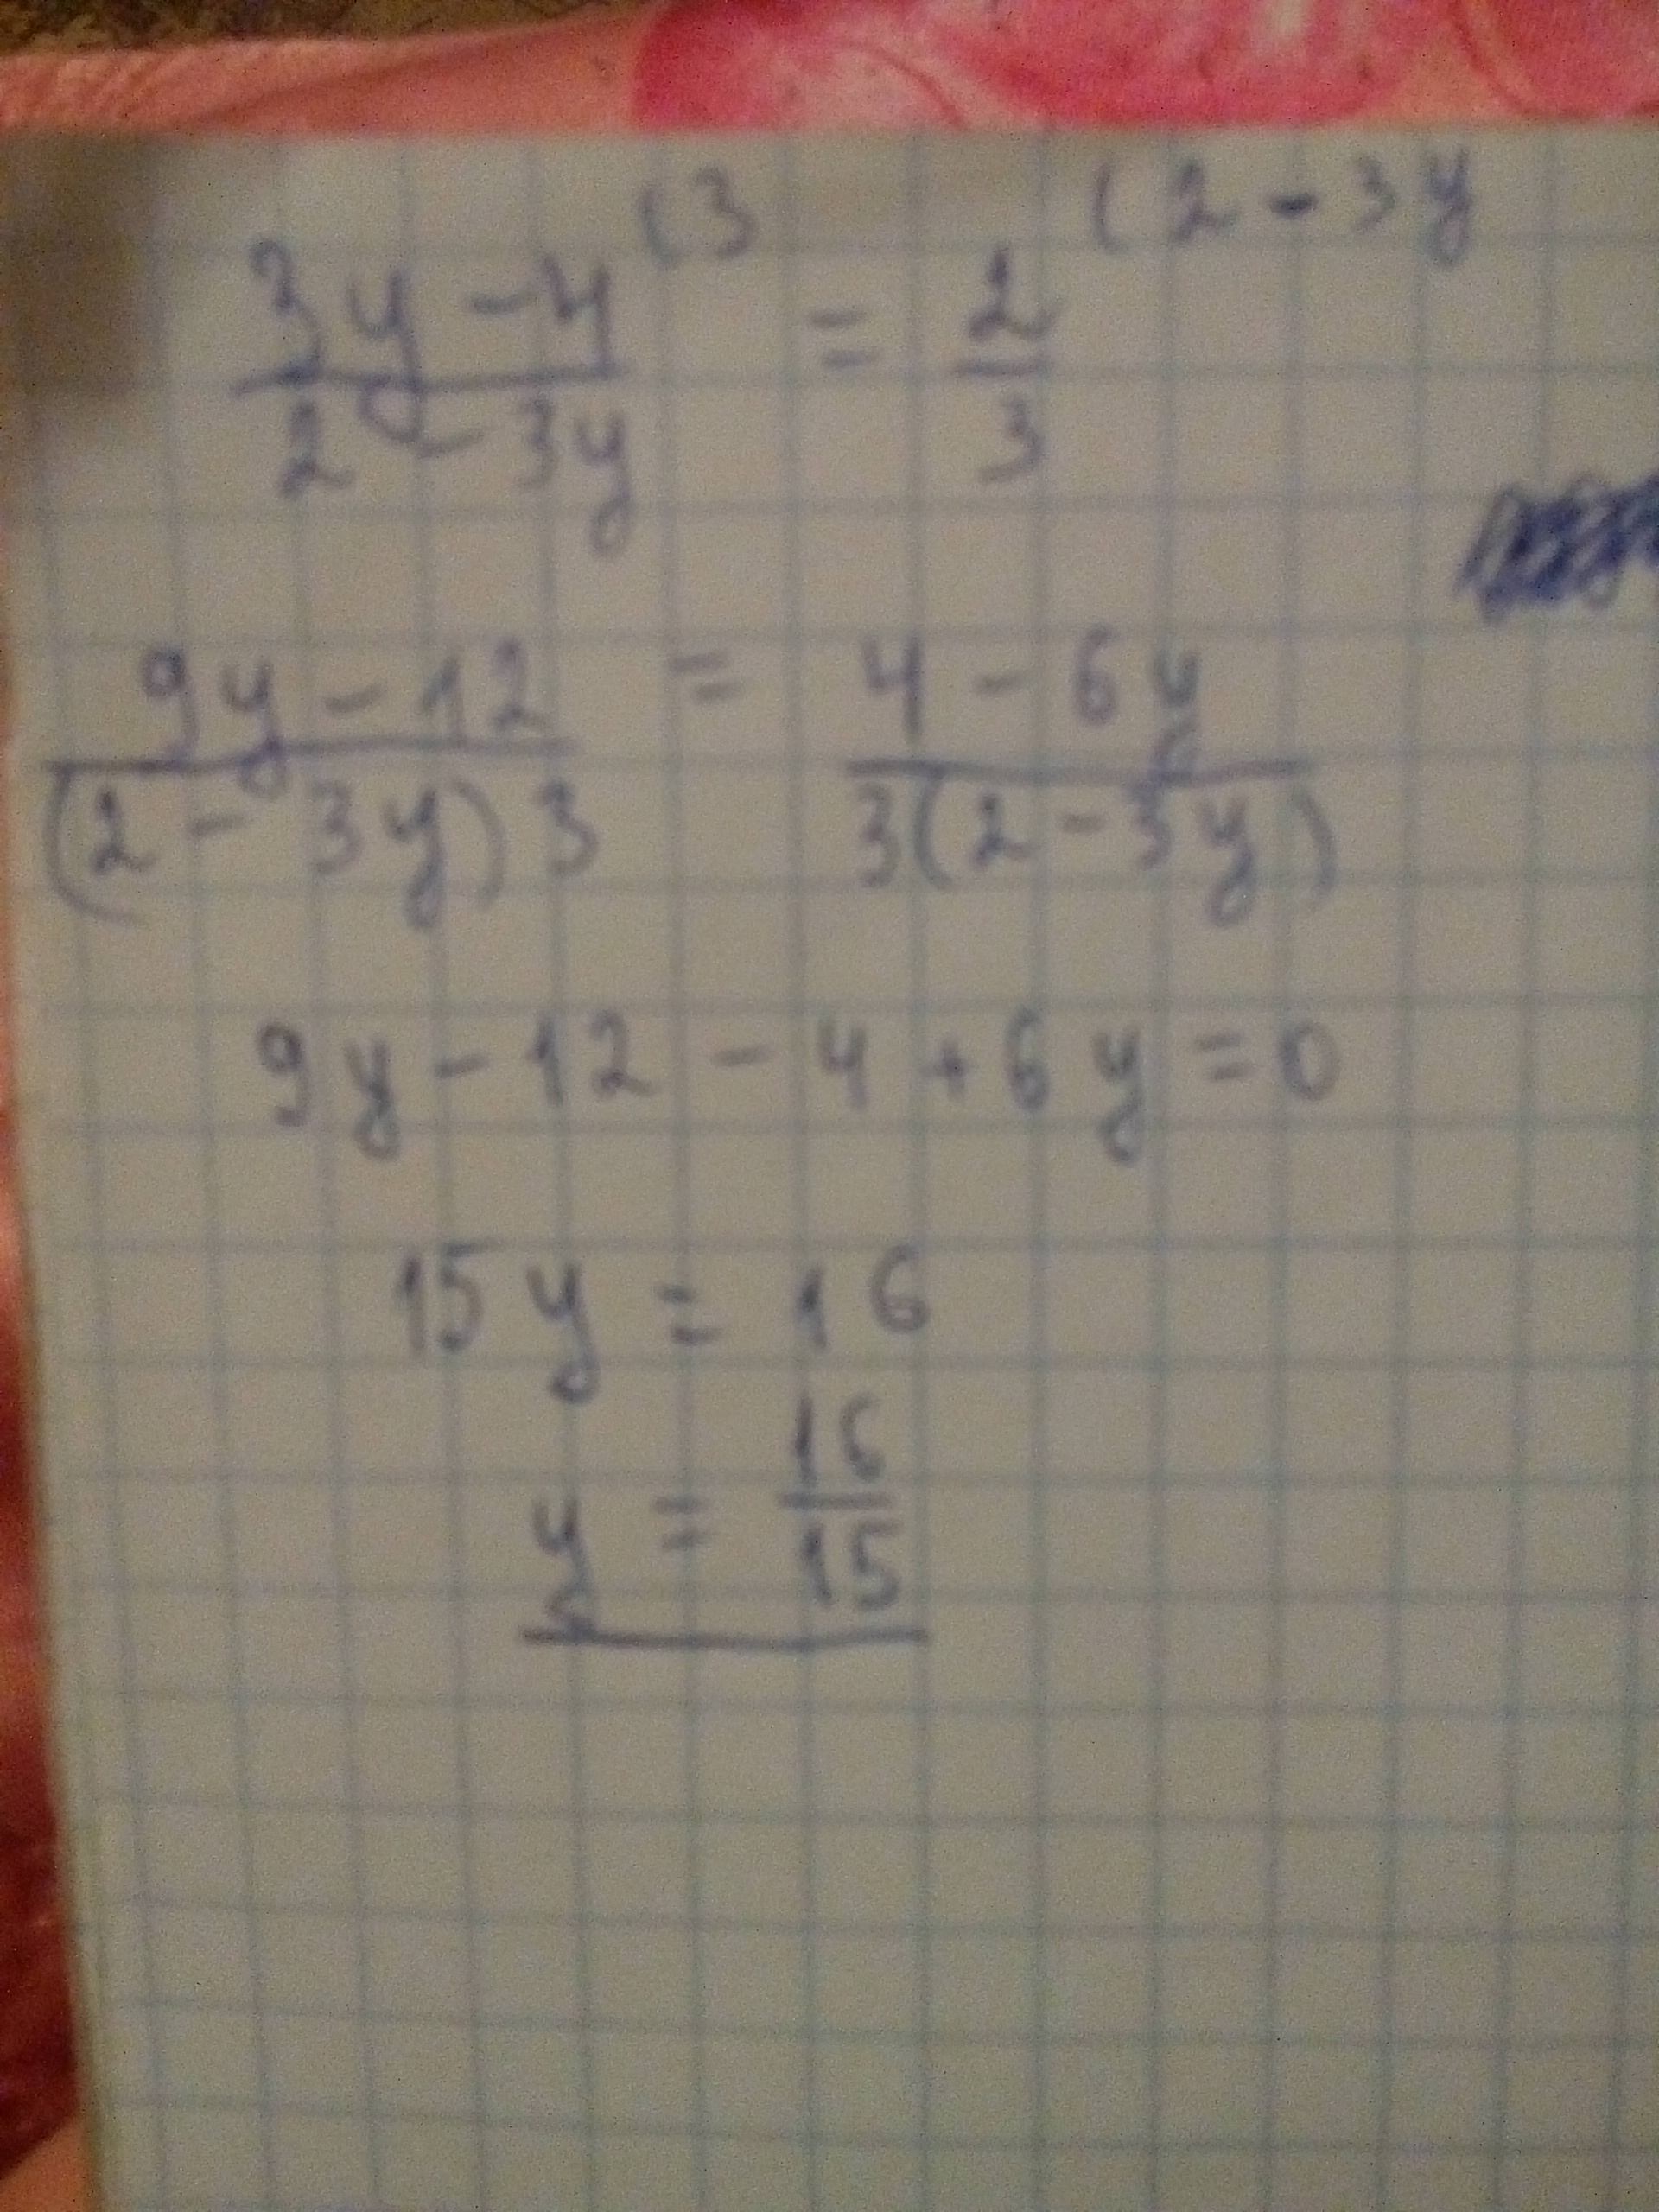 (3 (2 - 3y
3y - 4 / 2 - 3y = 2 / 3
9y - 12 / (2 - 3y) 3 = 4 - 6y / 3(2 - 3y)
9y - 12 - 4 + 6y = 0
15y = 16
y = 16 / 15